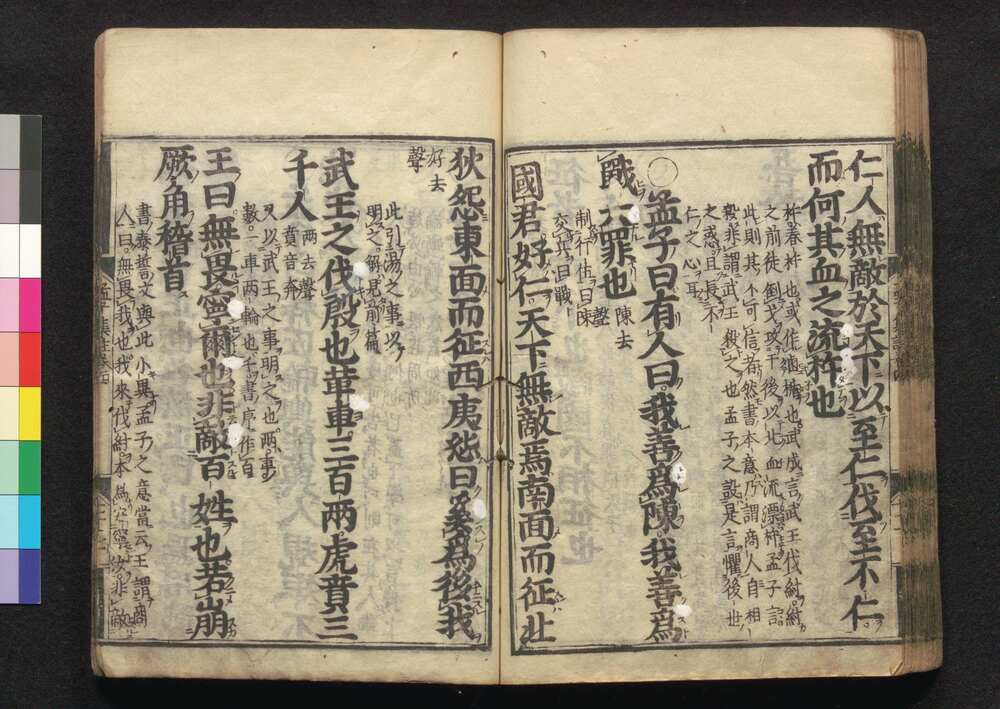 仁人無敵於天下以至仁伐至不仁
而何其血之流杵也
杵舂杵也或作鹵楯也武成言武王伐紂紂
之前徒倒戈攻于後以北血流漂杵孟子言
此則其不可信者然書本意乃謂商人自相
殺非謂武王殺之也孟子之設是言懼後世
之惑且長不
仁之心耳
孟子曰有人曰我善為陳我善為
戰大罪也
陳去聲
制行伍曰陳
交兵曰戰
國君好仁天下無敵焉南面而征北
狄怨東面而征西夷怨曰奚為後我
好去
聲
此引湯之事以
明之解見前篇
武王之伐殷也革車三百兩虎賁三
千人
兩去聲
賁音奔
又以武王之事明之也兩車
數一車兩輪也千書序作百
王曰無畏寧爾也非敵百姓也若崩
厥角稽首
書泰誓文與此小異孟子之意當云王謂商
人曰無畏我也我來伐紂本為安寧汝非敵